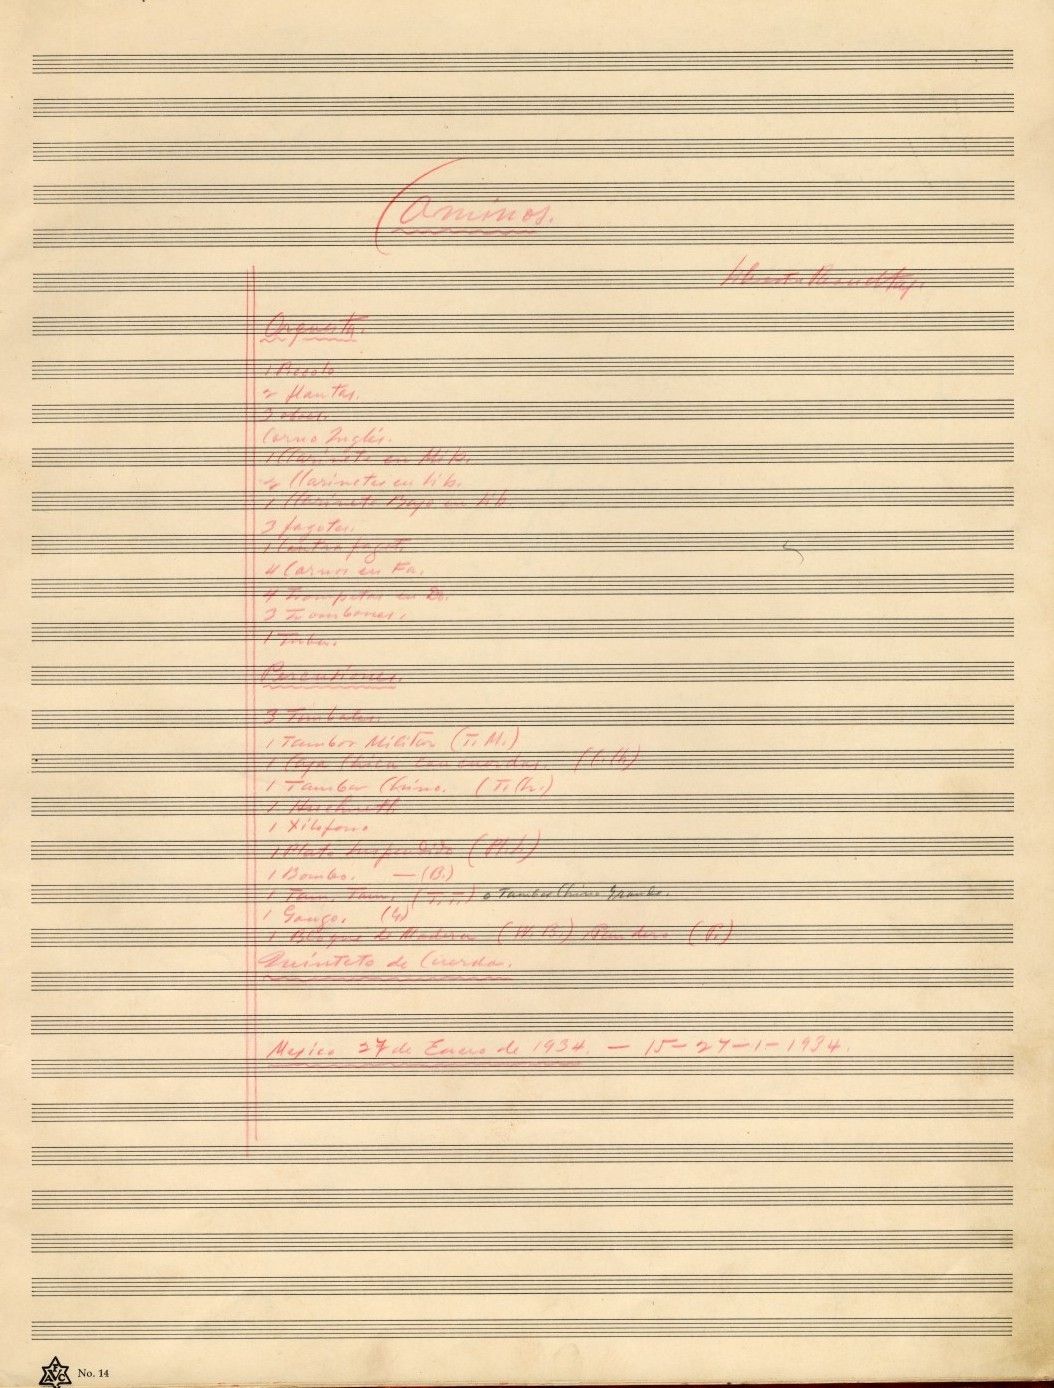 Caminos.
Silvestre Revueltas.
Orquesta.
1 Piccolo
2 flautas.
3 oboes.
Corno Inglés.
1 Clarinete en Mib.
2 Clarinetes en Sib.
1 Clarinete Bajo en Sib.
3 fagotes.
1 Contra fagot.
4 Cornos en Fa.
4 Trompetas en Do.
3 Trombones.
1 Tuba.
Percusiones.
3 Timbales.
1 Tambor Militar (T. M.)
1 Caja Chica con cuerdas. (C. Ch)
1 Tambor Chino. (T. Ch.)
1
1 Xilofono
1 Plato Suspendido (Pl. S.)
1 Bombo. — (B.)
1 Tam. Tam. (T. T.) o Tambor Chino Grande.
1 Gongo. (G)
1 Bloque de Madera (W. B.) Pandero (P.)
Quinteto de Cuerda.
Mexico 27 de Enero de 1934. — 15 — 27 — 1 — 1934.
No. 14